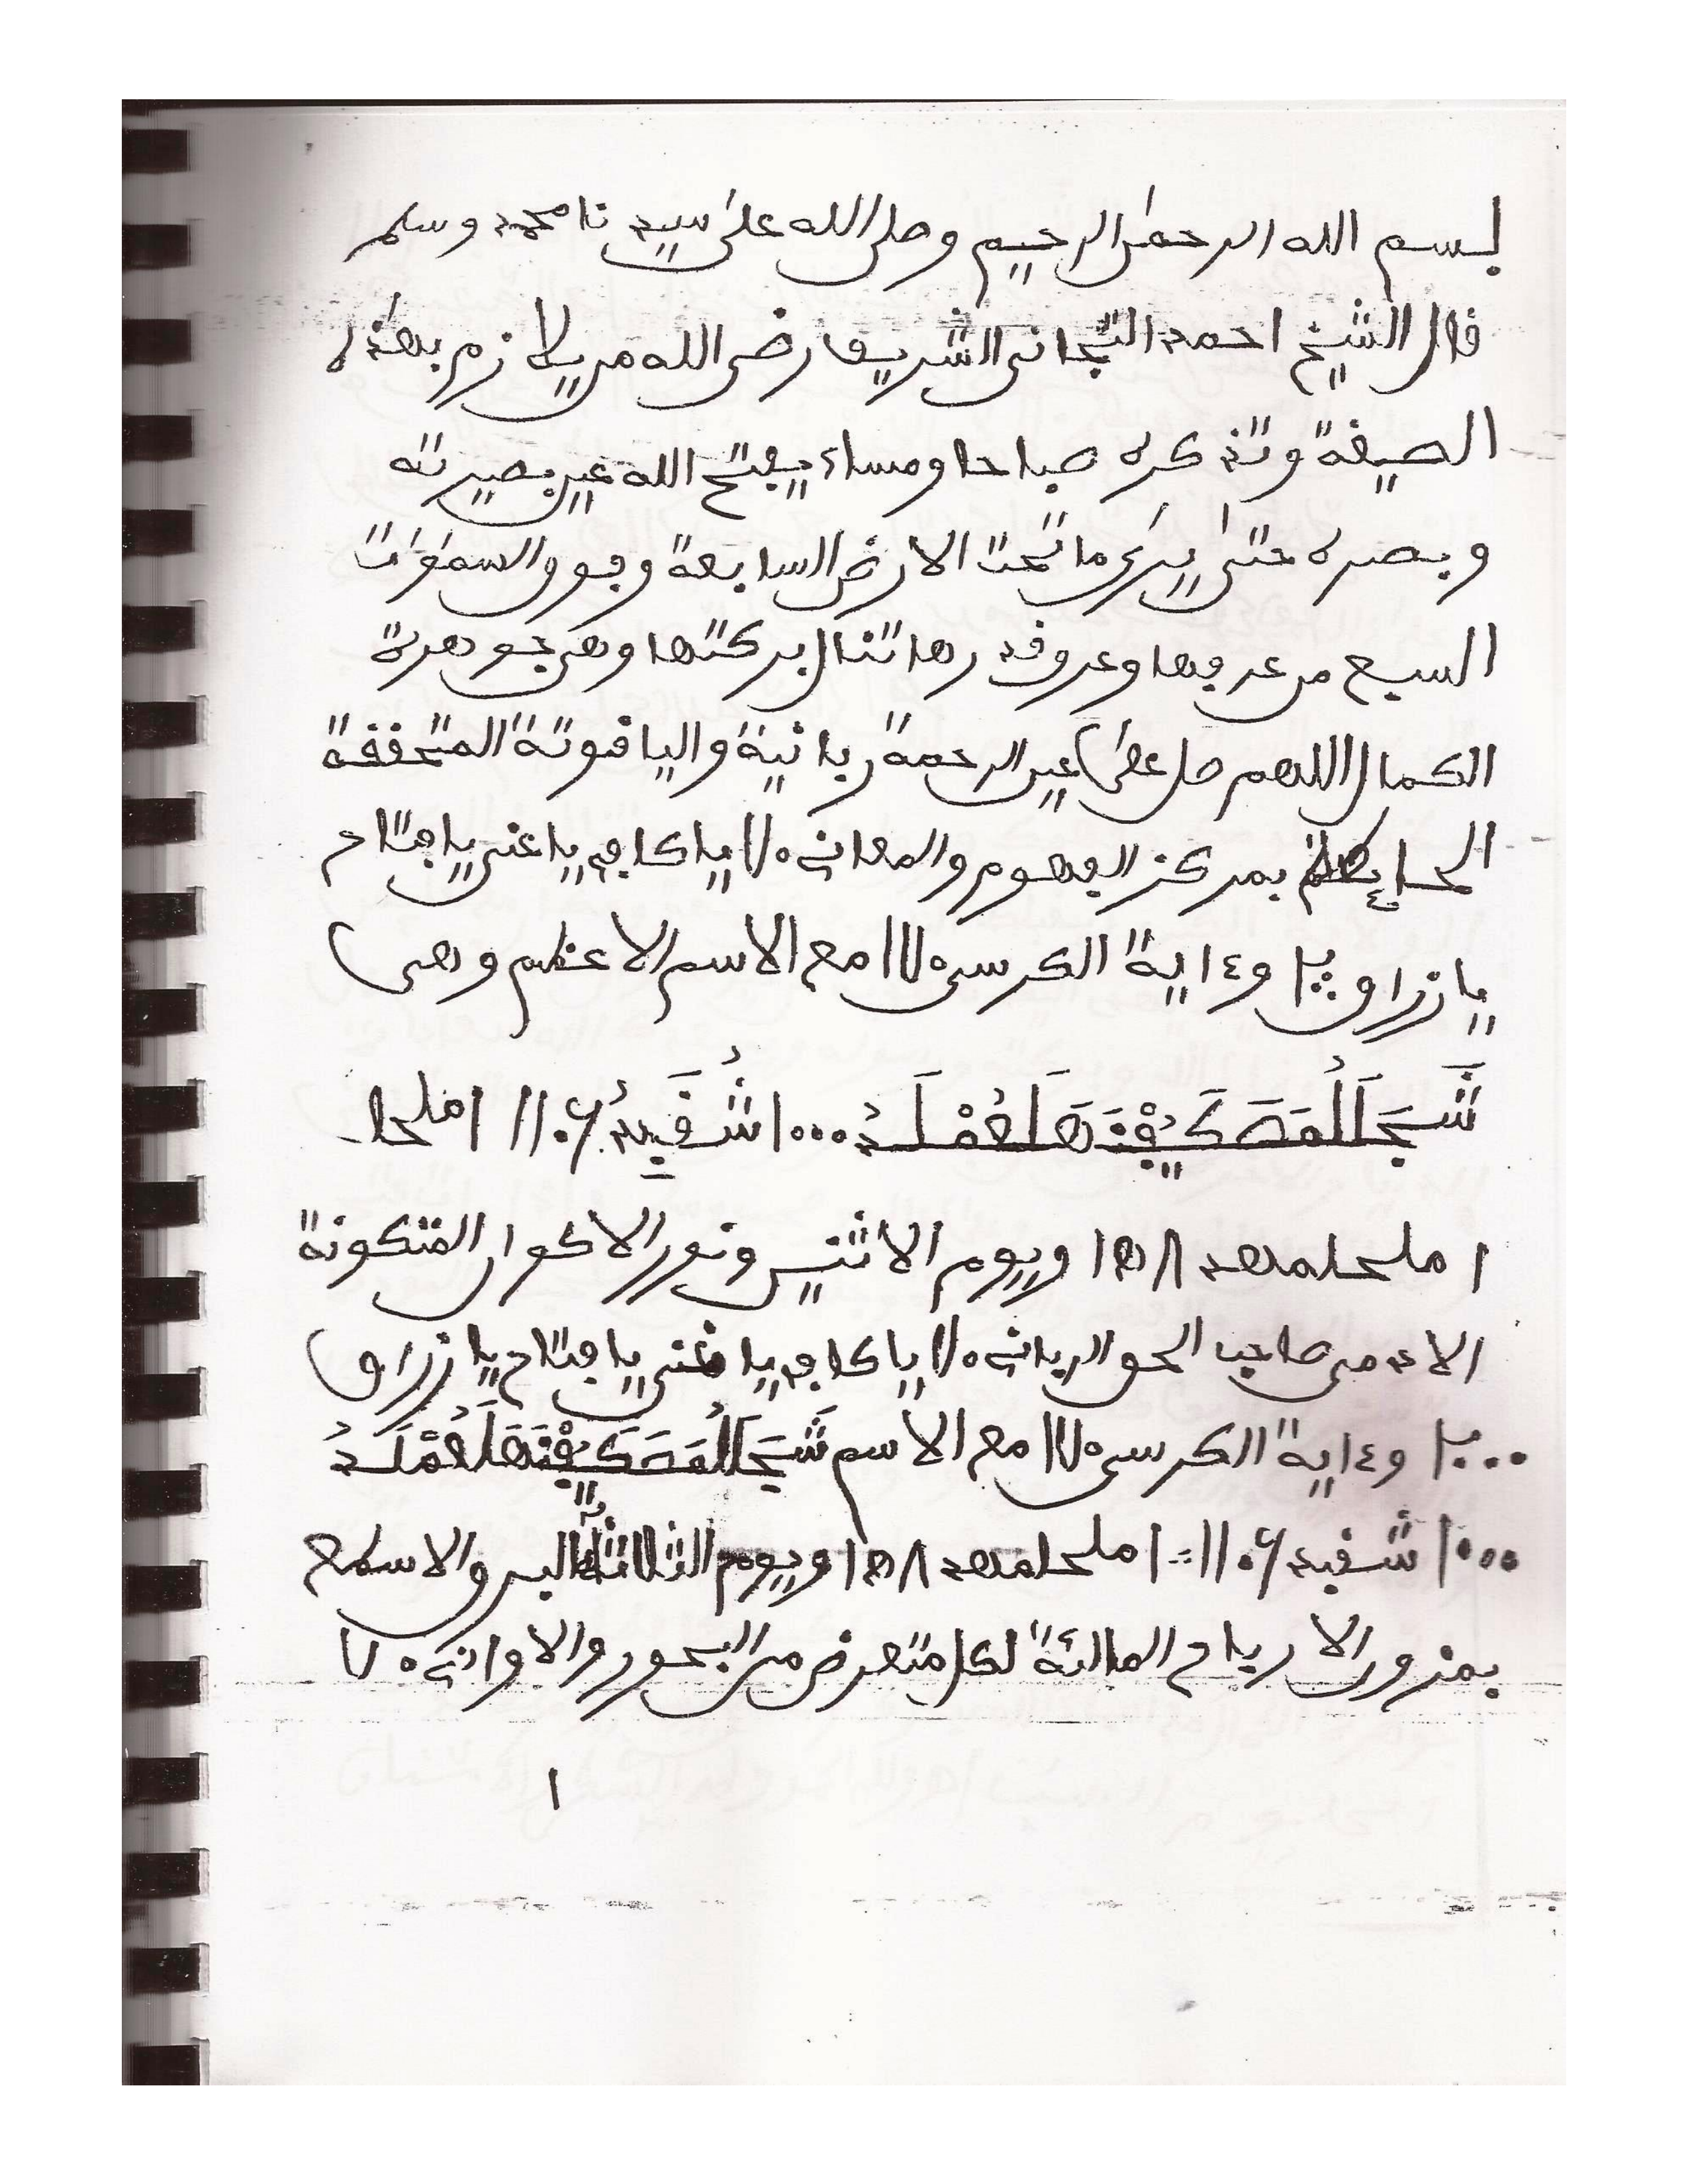 بسم الله الرحمٰن الرحيم وصلى الله على سيدنا محمد وسلم
قال الشيخ احمد التجانى الشريف رضى الله من يلازم بهذه
الصيغة وتذكره صباحا ومساء يفتح الله عين بصيرته
وبصره حتى يرى ما تحت الارض السابعة وفوق السمٰوٰت
السبع من عرفها وعر وقدرها تنال بركتها وهى جوهرة
الكمال اللهم صل على عين الرحمة ربانية والياقوتة المتحققة
الحايطة بمركز الفهوم والمعانى ٧٥ يا كافى يا غنى يا فتاح
يا رزاق وءاية الكرسى مع الاسم الاعظم وهى
١٠٠٠ املحا
املحلمهد ويوم الاثنين ونور الاكوان المتكونة
الادمى صاحب الحق الربانى يا كافى يا غنى يا فتاح يا رزاق
وءاية الكرسى مع الاسم
١٠٠٠ املحلمهد ويوم الثلاثاء البرق الاسطع
بمزون الارباح المالئة لكل متعرض من البحور والاوانى
١